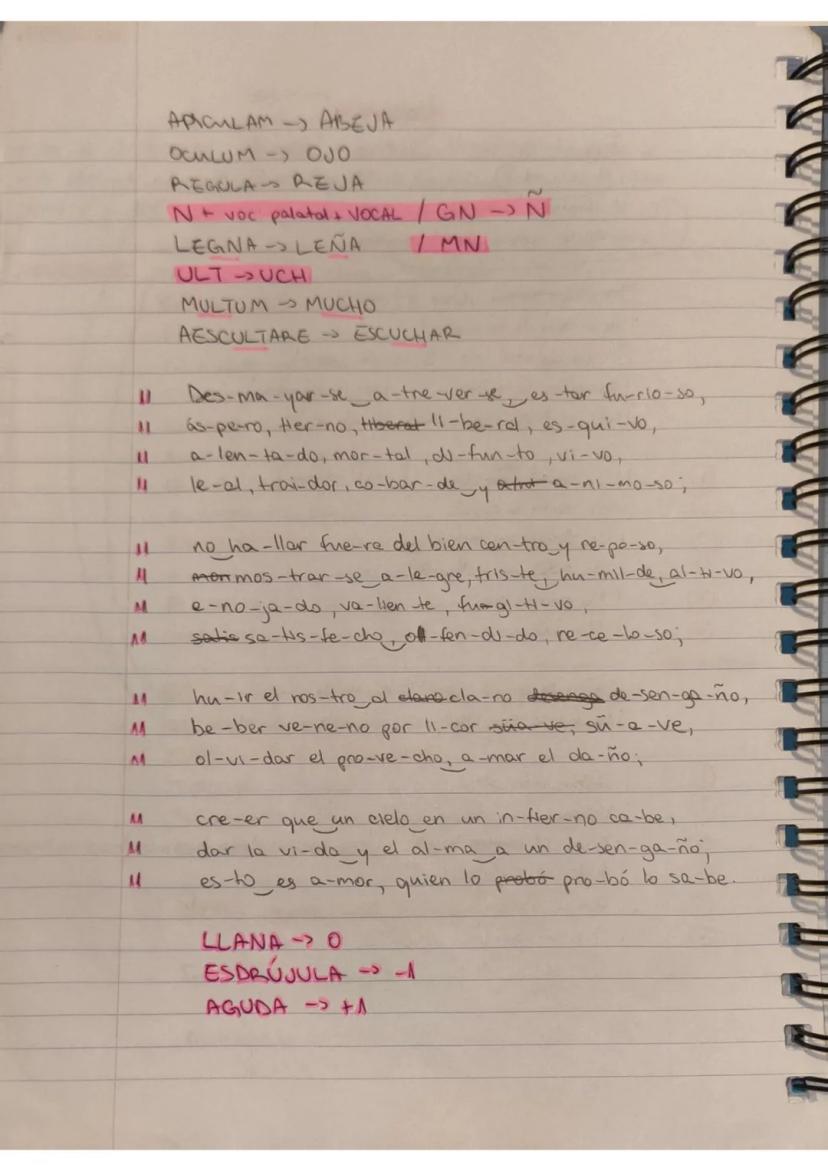 APICULAM → ABEJA
OCULUM → OJO
REGULA → REJA
N + voc palatal + VOCAL / GN → Ñ
LEGNA → LEÑA / MN
ULT → UCH
MULTUM → MUCHO
AESCULTARE → ESCUCHAR
11 Des-ma-yar-se‿a-tre-ver-se,‿es-tar fu-rio-so,
11 ás-pe-ro, tier-no, ~~liberal~~ li-be-ral, es-qui-vo,
11 a-len-ta-do, mor-tal, di-fun-to, vi-vo,
11 le-al, trai-dor, co-bar-de‿y a-ni-mo-so;
11 no‿ha-llar fue-ra del bien cen-tro‿y re-po-so,
11 ~~mon~~ mos-trar-se‿a-le-gre, tris-te,‿hu-mil-de,‿al-ti-vo,
11 e-no-ja-do, va-lien-te, fu-gi-ti-vo,
11 ~~satis~~ sa-tis-fe-cho,‿o-fen-di-do, re-ce-lo-so;
11 hu-ir el ros-tro‿al ~~claro~~ cla-ro ~~desenga~~ de-sen-ga-ño,
11 be-ber ve-ne-no por li-cor ~~süa-ve,~~ sü-a-ve,
11 ol-vi-dar el pro-ve-cho,‿a-mar el da-ño;
11 cre-er que‿un cielo‿en un in-fier-no ca-be,
11 dar la vi-da‿y el al-ma‿a un de-sen-ga-ño;
11 es-to‿es a-mor, quien lo ~~probó~~ pro-bó lo sa-be.
LLANA → 0
ESDRÚJULA → -1
AGUDA → +1